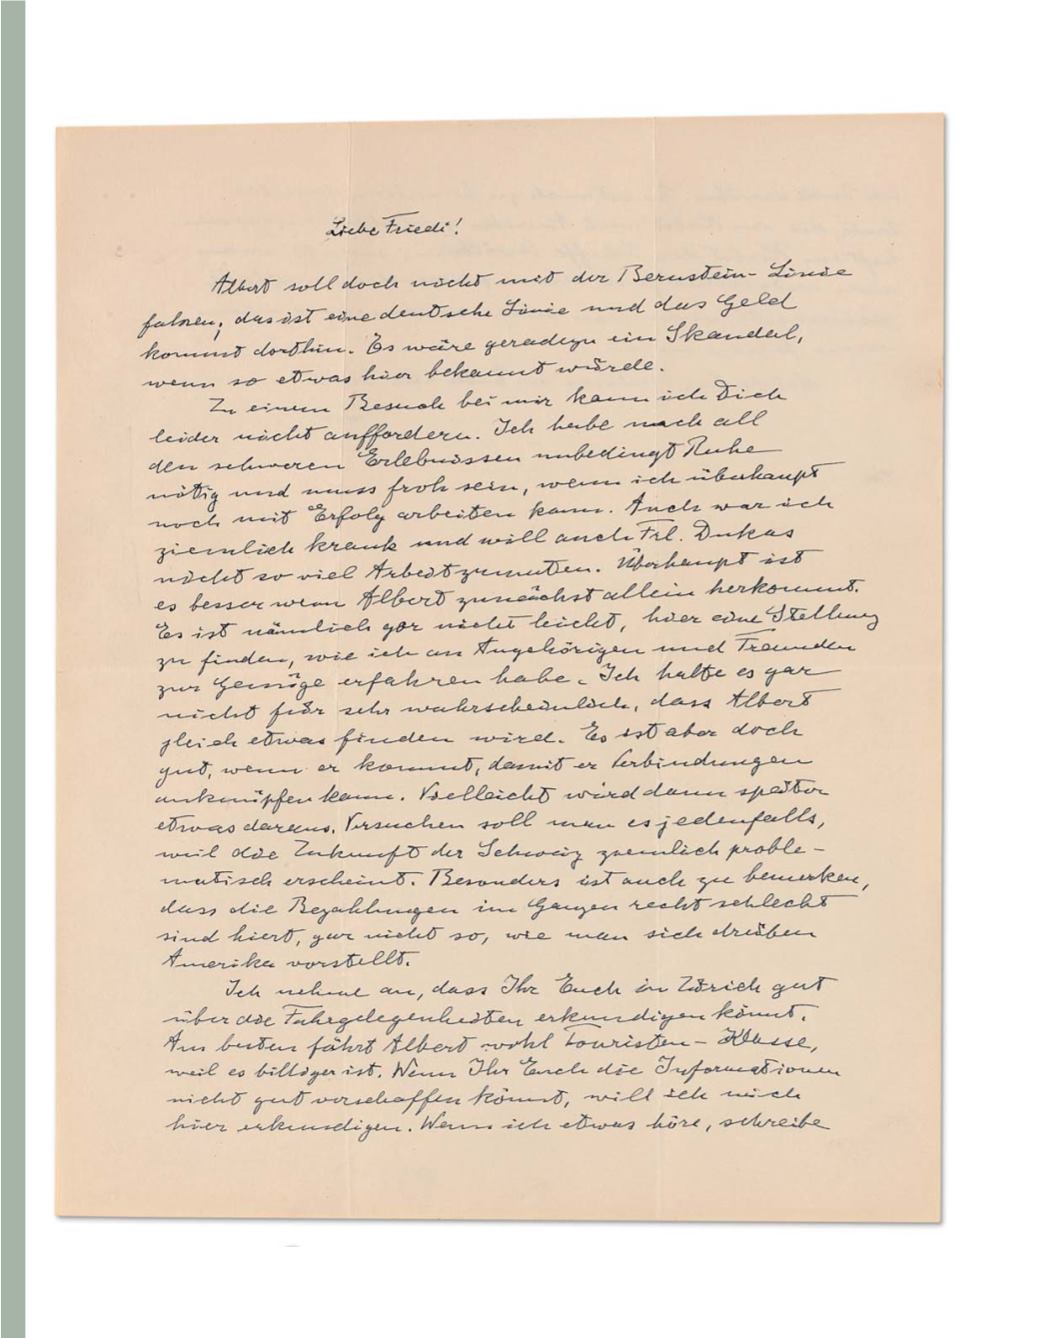 Liebe Friedi!
Albert soll doch nicht mit der Bernstein-Linie
fahren; das ist eine deutsche Linie und das Geld
kommt dorthin. Es wäre geradezu ein Skandal,
wenn so etwas hier bekannt würde.
Zu einem Besuch bei mir kann ich Dich
leider nicht auffordern. Ich habe nach all
den schweren Erlebnissen unbedingt Ruhe
nötig und muss froh sein, wenn ich überhaupt
noch mit Erfolg arbeiten kann. Auch war ich
ziemlich krank und will auch Frl. Dukas
nicht so viel Arbeit zumuten. Überhaupt ist
es besser wenn Albert zunächst allein herkommt.
Es ist nämlich gar nicht leicht, hier eine Stellung
zu finden, wie ich an Angehörigen und Freunden
zur Genüge erfahren habe. Ich halte es gar
nicht für sehr wahrscheinlich, dass Albert
gleich etwas finden wird. Es ist aber doch
gut, wenn er kommt, damit er Verbindungen
anknüpfen kann. Vielleicht wird dann später
etwas daraus. Versuchen soll man es jedenfalls,
weil die Zukunft der Schweiz ziemlich proble-
matisch erscheint. Besonders ist auch zu bemerken,
dass die Bezahlungen im Ganzen recht schlecht
sind hier, gar nicht so, wie man sich drüben
Amerika vorstellt.
Ich nehme an, dass Ihr Euch in Zürich gut
über die Fahrgelegenheiten erkundigen könnt.
Am besten fährt Albert wohl Touristen-Klasse,
weil es billiger ist. Wenn Ihr Euch die Informationen
nicht gut verschaffen könnt, will ich mich
hier erkundigen. Wenn ich etwas höre, schreibe